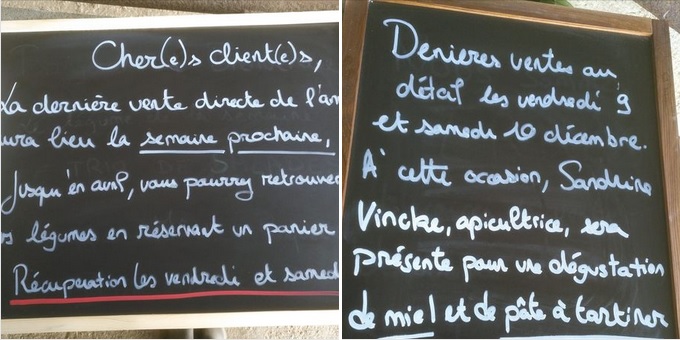 Cher(e)s client(e)s,
La dernière vente directe de l'an
ura lieu la semaine prochaine,
Jusqu'en avril, vous pourrez retrouver
os légumes en réservant un panier
Récupération les vendredi et samed
Denieres ventes au
détail les vendredi 9
et samedi 10 décembre.
A cette occasion, Sandrine
Vincke, apicultrice, sera
présente pour une dégustation
de miel et de pâte à tartiner